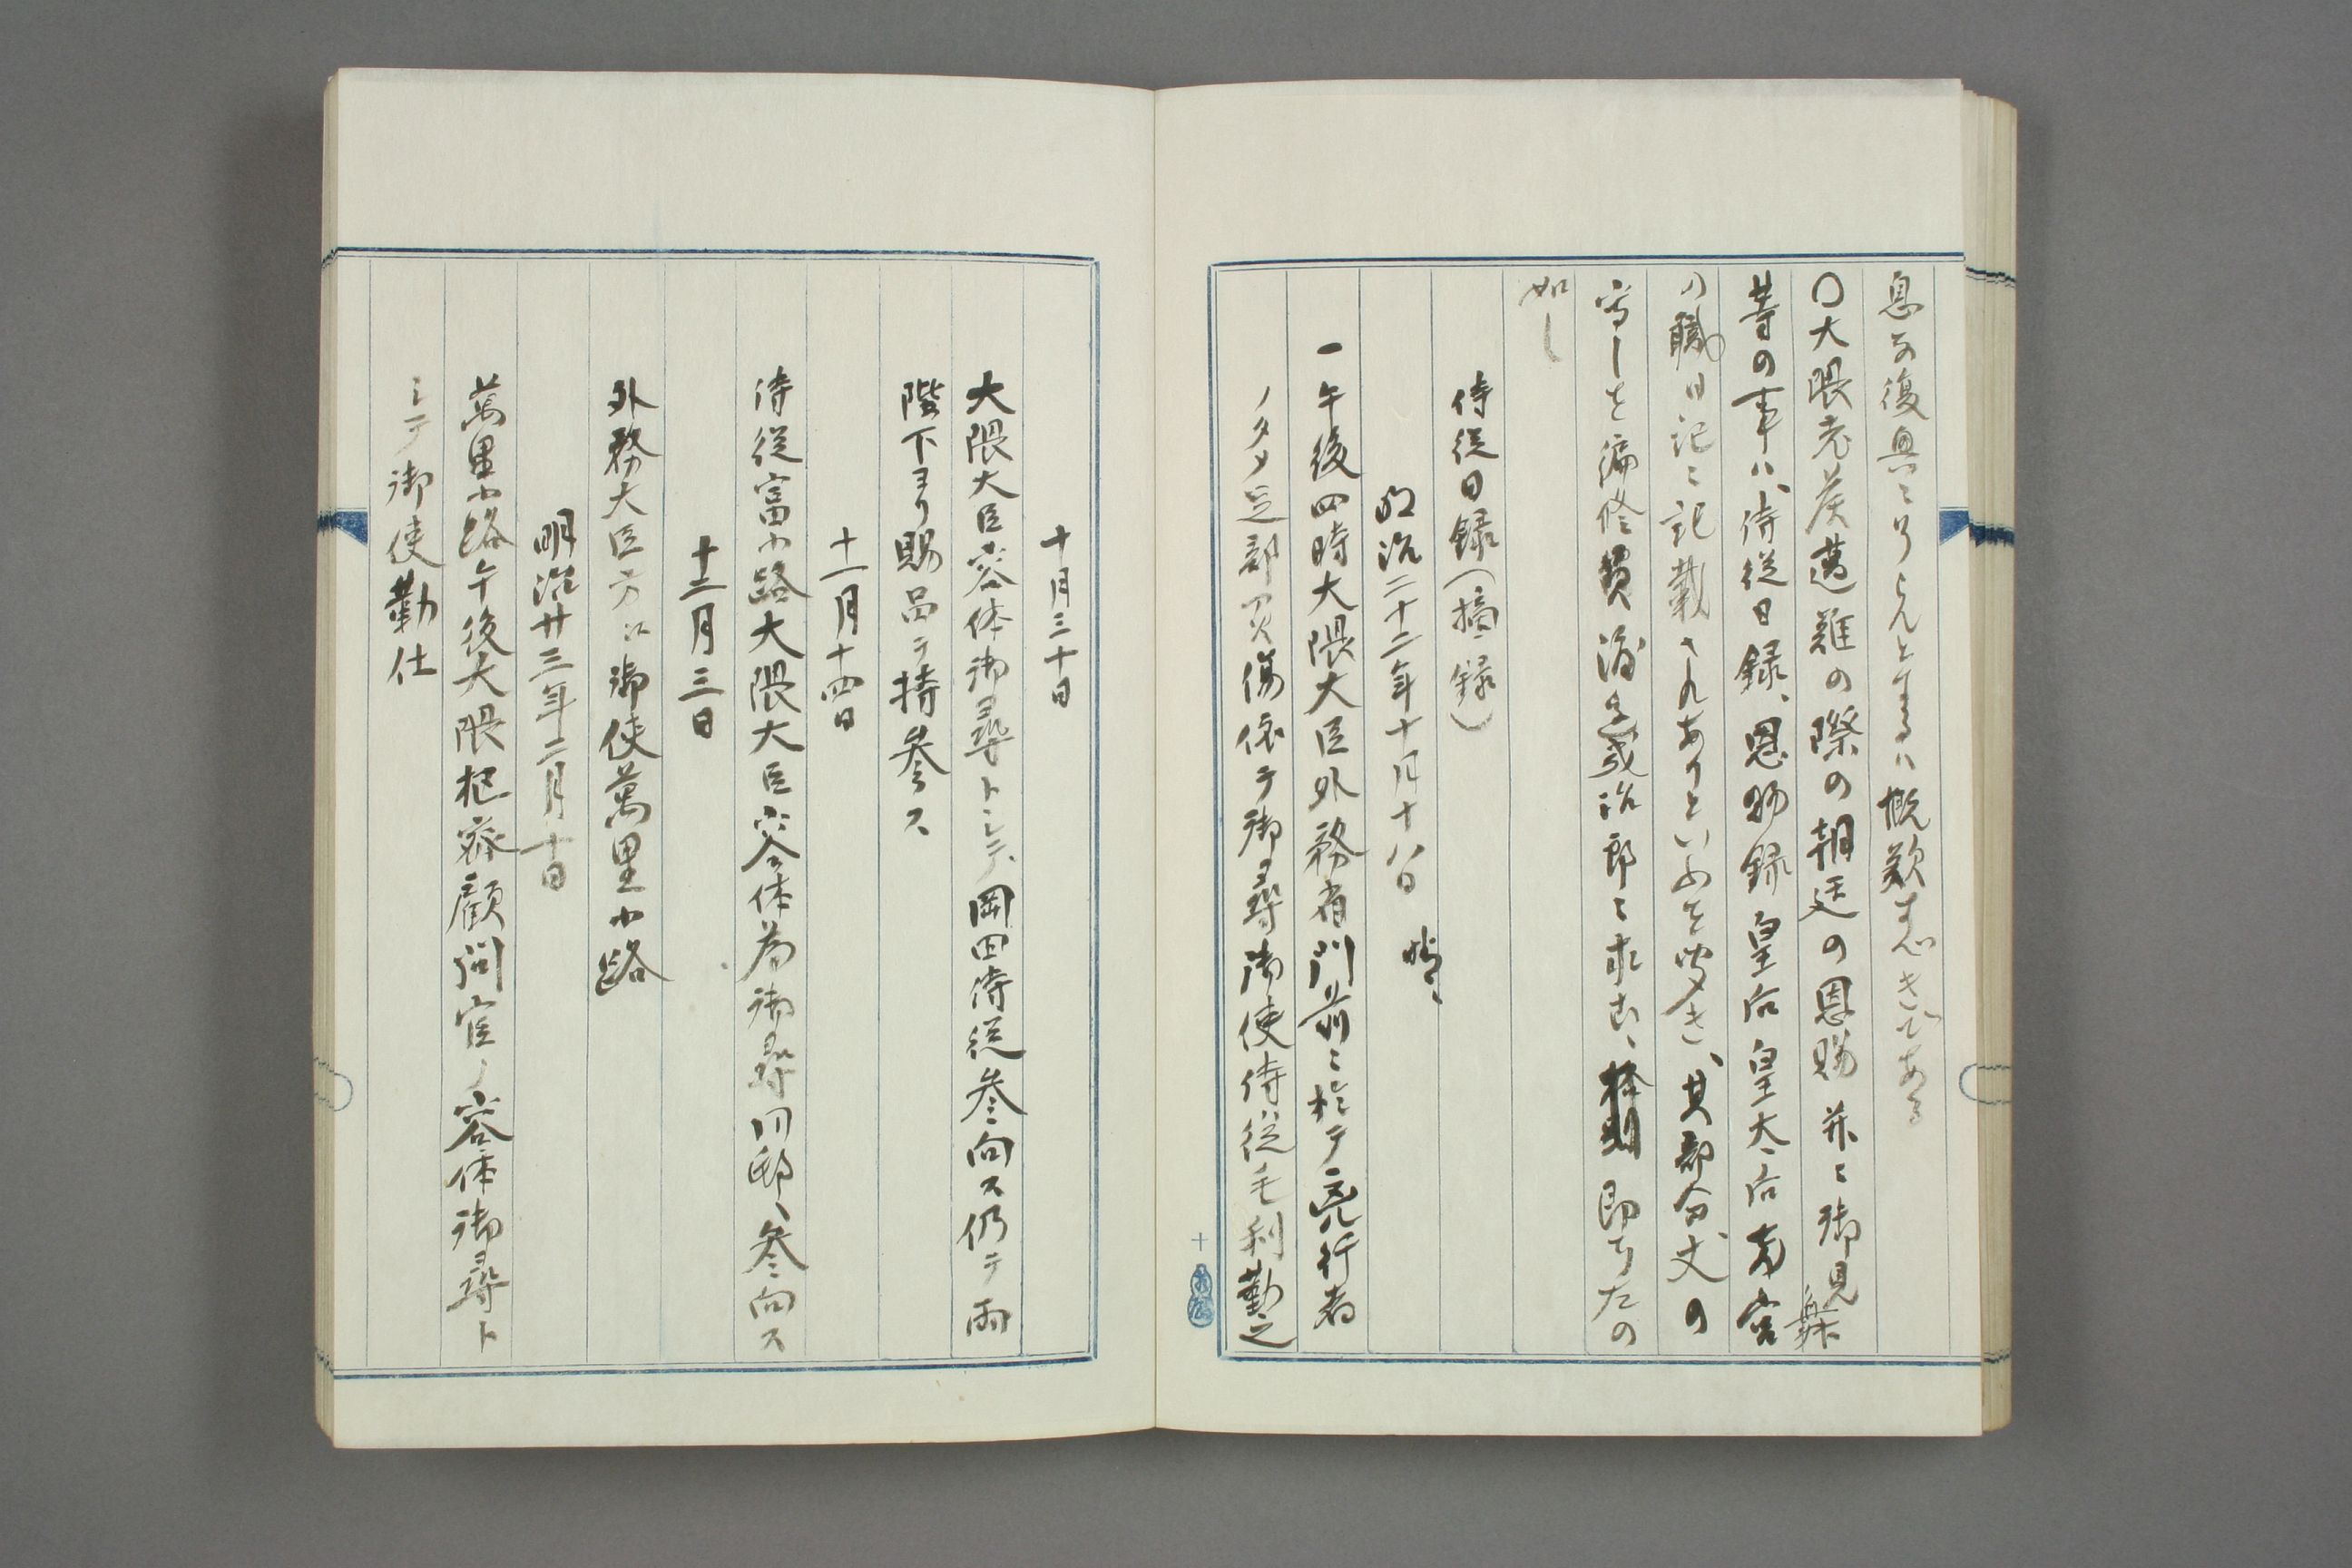 息を復興にりらんとするハ慨歎すべきである
〇大隈老侯遭難の際の朝廷の恩賜并に御見舞
等の事ハ、侍従日録、恩賜録皇后皇太后両宮
の職日記に記載されありといふを聞き、其部分丈の
寫しを編修費渡邊幾治郎に求む、採録即ち左の
如し
侍従日録(摘録)
明治二十二年十月十八日 晴
一午後四時大隈大臣外務省門前ニ於テ兇行者
ノタメ足部買傷依テ御尋御使侍従毛利勤之
十月三十日
大隈大臣容体御尋トシテ、岡田侍従参向ス仍テ両
陛下ヨリ賜品ヲ持参ス
十一月十四日
侍従富小路大隈大臣容体為御尋同邸ヘ参向ス
十二月三日
外務大臣方ニ御使萬里小路
明治廿三年二月十日
萬里小路午後大隈枢密顧問官ノ容体御尋ト
シテ御使勤仕
十